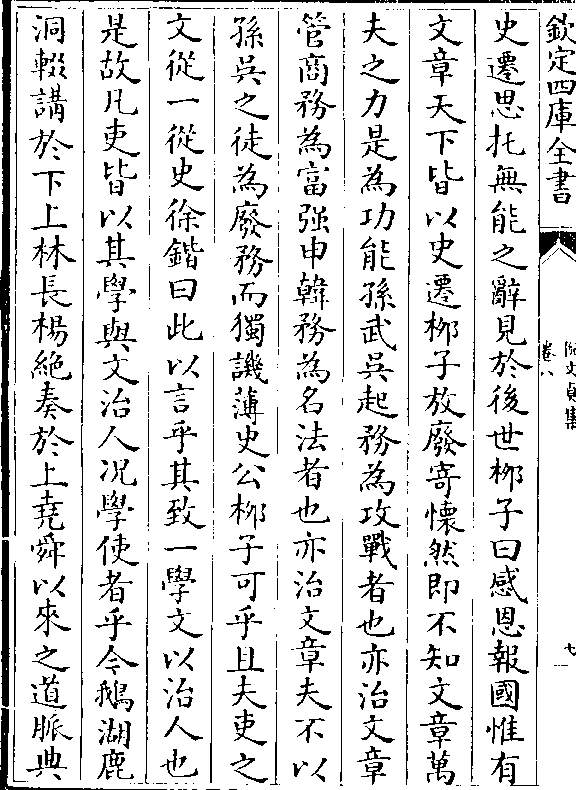 欽定四庫全書
史遷思托無能之辭見於後世栁子曰感恩報國惟有
文章天下皆以史遷栁子放廢寄懷然即不知文章萬
夫之力是為功能孫武吳起務為攻戰者也亦治文章
管商務為富强申韓務為名法者也亦治文章夫不以
孫吳之徒為廢務而獨譏薄史公栁子可乎且夫吏之
文從一從史徐鍇曰此以言乎其致一學文以治人也
是故凡吏皆以其學與文治人况學使者乎今鵝湖鹿
洞輟講於下上林長楊絶奏於上堯舜以來之道脈典
卷八
七